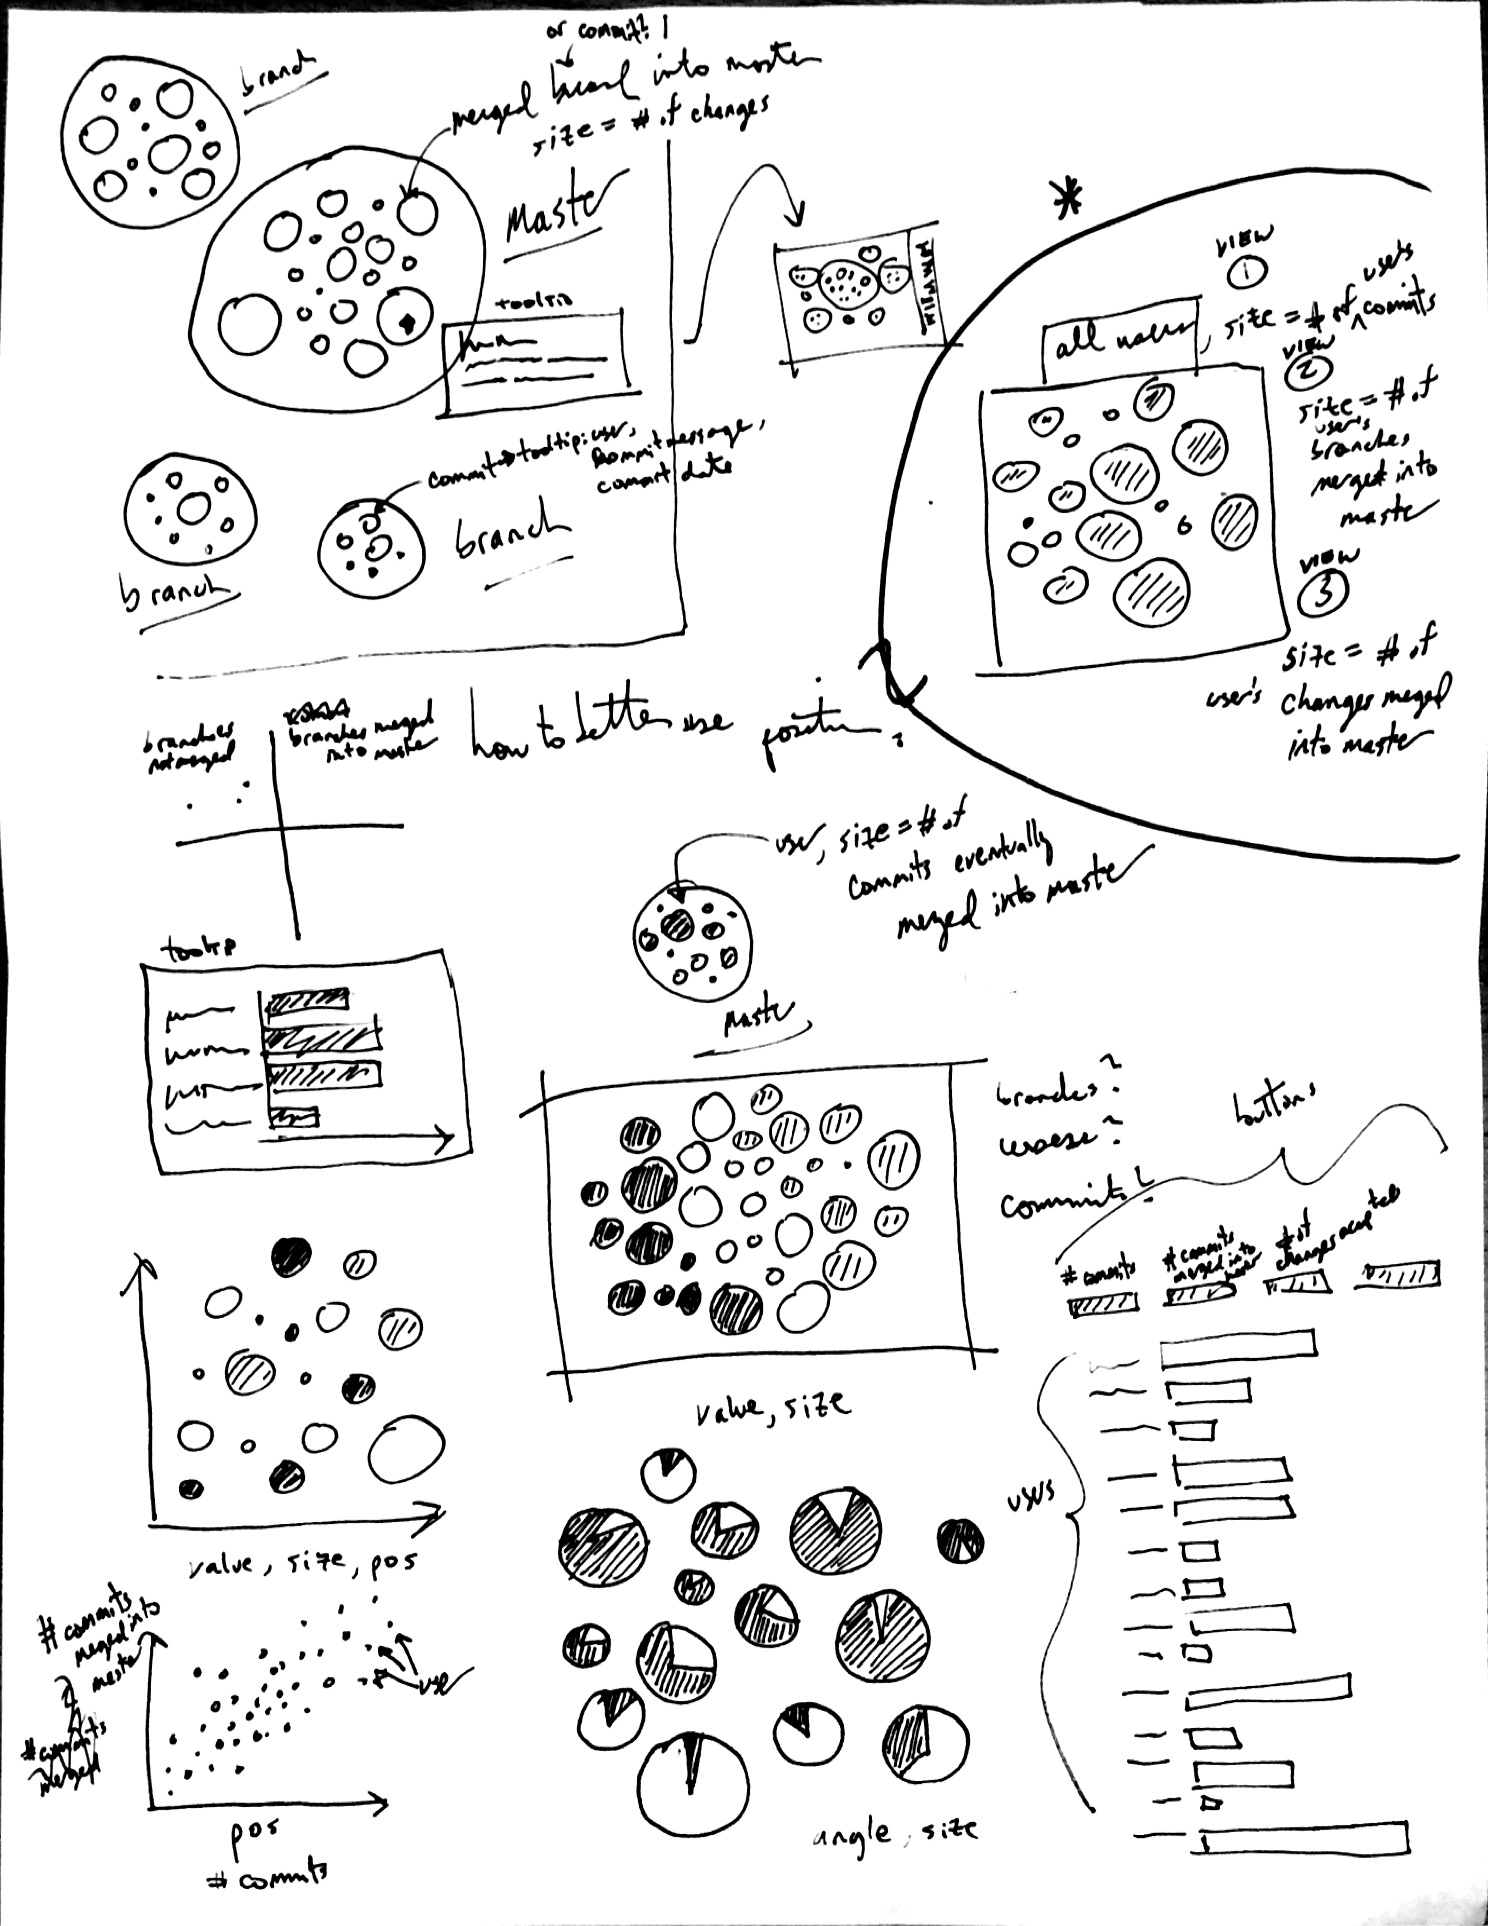 branch
or commit?!
merged branch into master
size = # of changes
Master
tooltip
commit → tooltip: user,
commit message,
commit date
branch
branch
*
VIEW
1
all users, size = # of user's commits
VIEW
2
size = # of
user's
branches
merged into
master
VIEW
3
size = # of
user's changes merged
into master
branches
not merged
branches merged
into master
how to better use position?
user, size = # of
commits eventually
merged into master
master
tooltip
branches?
users?
commits?
buttons
# commits
# commits
merged into
master
# of
changes accepted
value, size
users
value, size, pos
# commits
merged into
master
# commits
merged
user
pos
# commits
angle, size